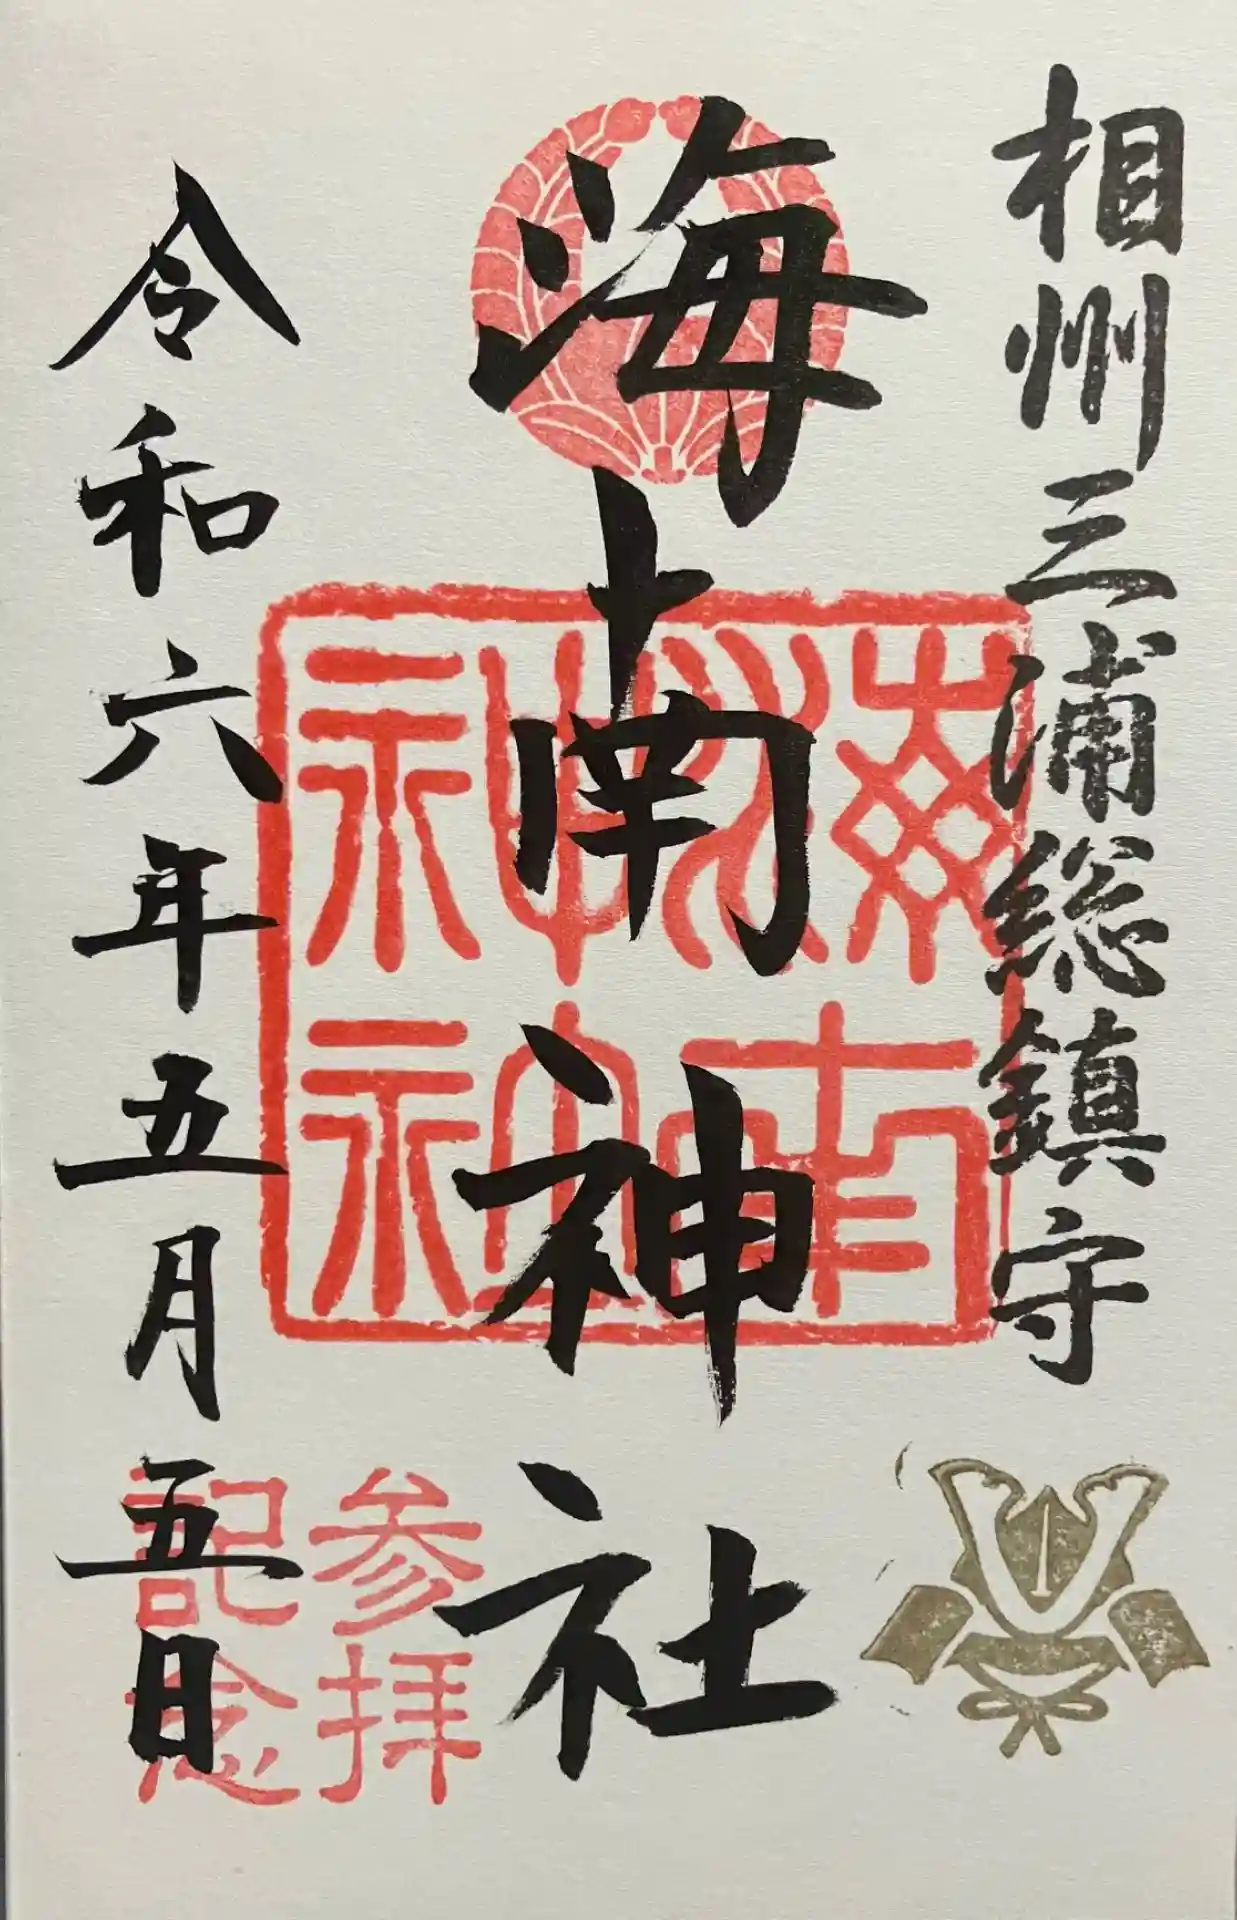 相州三浦総鎮守
海南神社
海南
神社
参拝
記念
令和六年五月五日